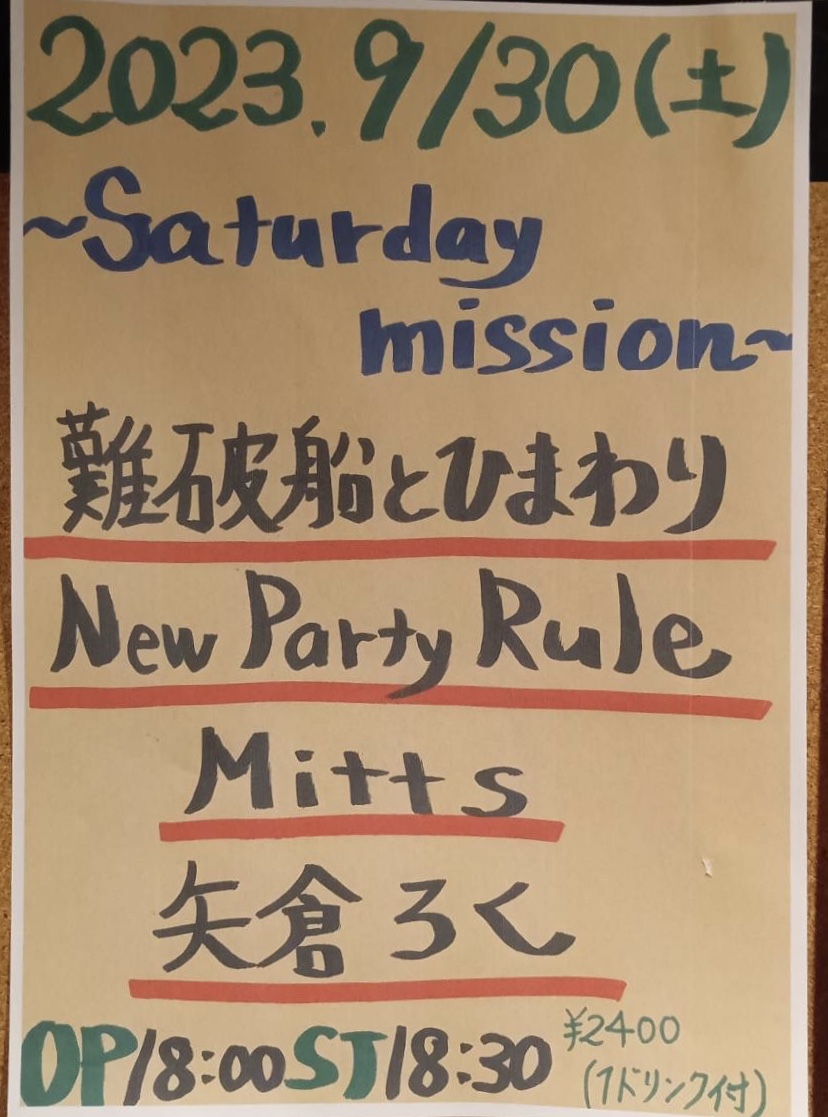 2023.9/30(土)
~Saturday
mission~
難破船とひまわり
New Party Rule
Mitts
矢倉ろく
OP/18:00 ST/18:30 ¥2400
(1ドリンク付)